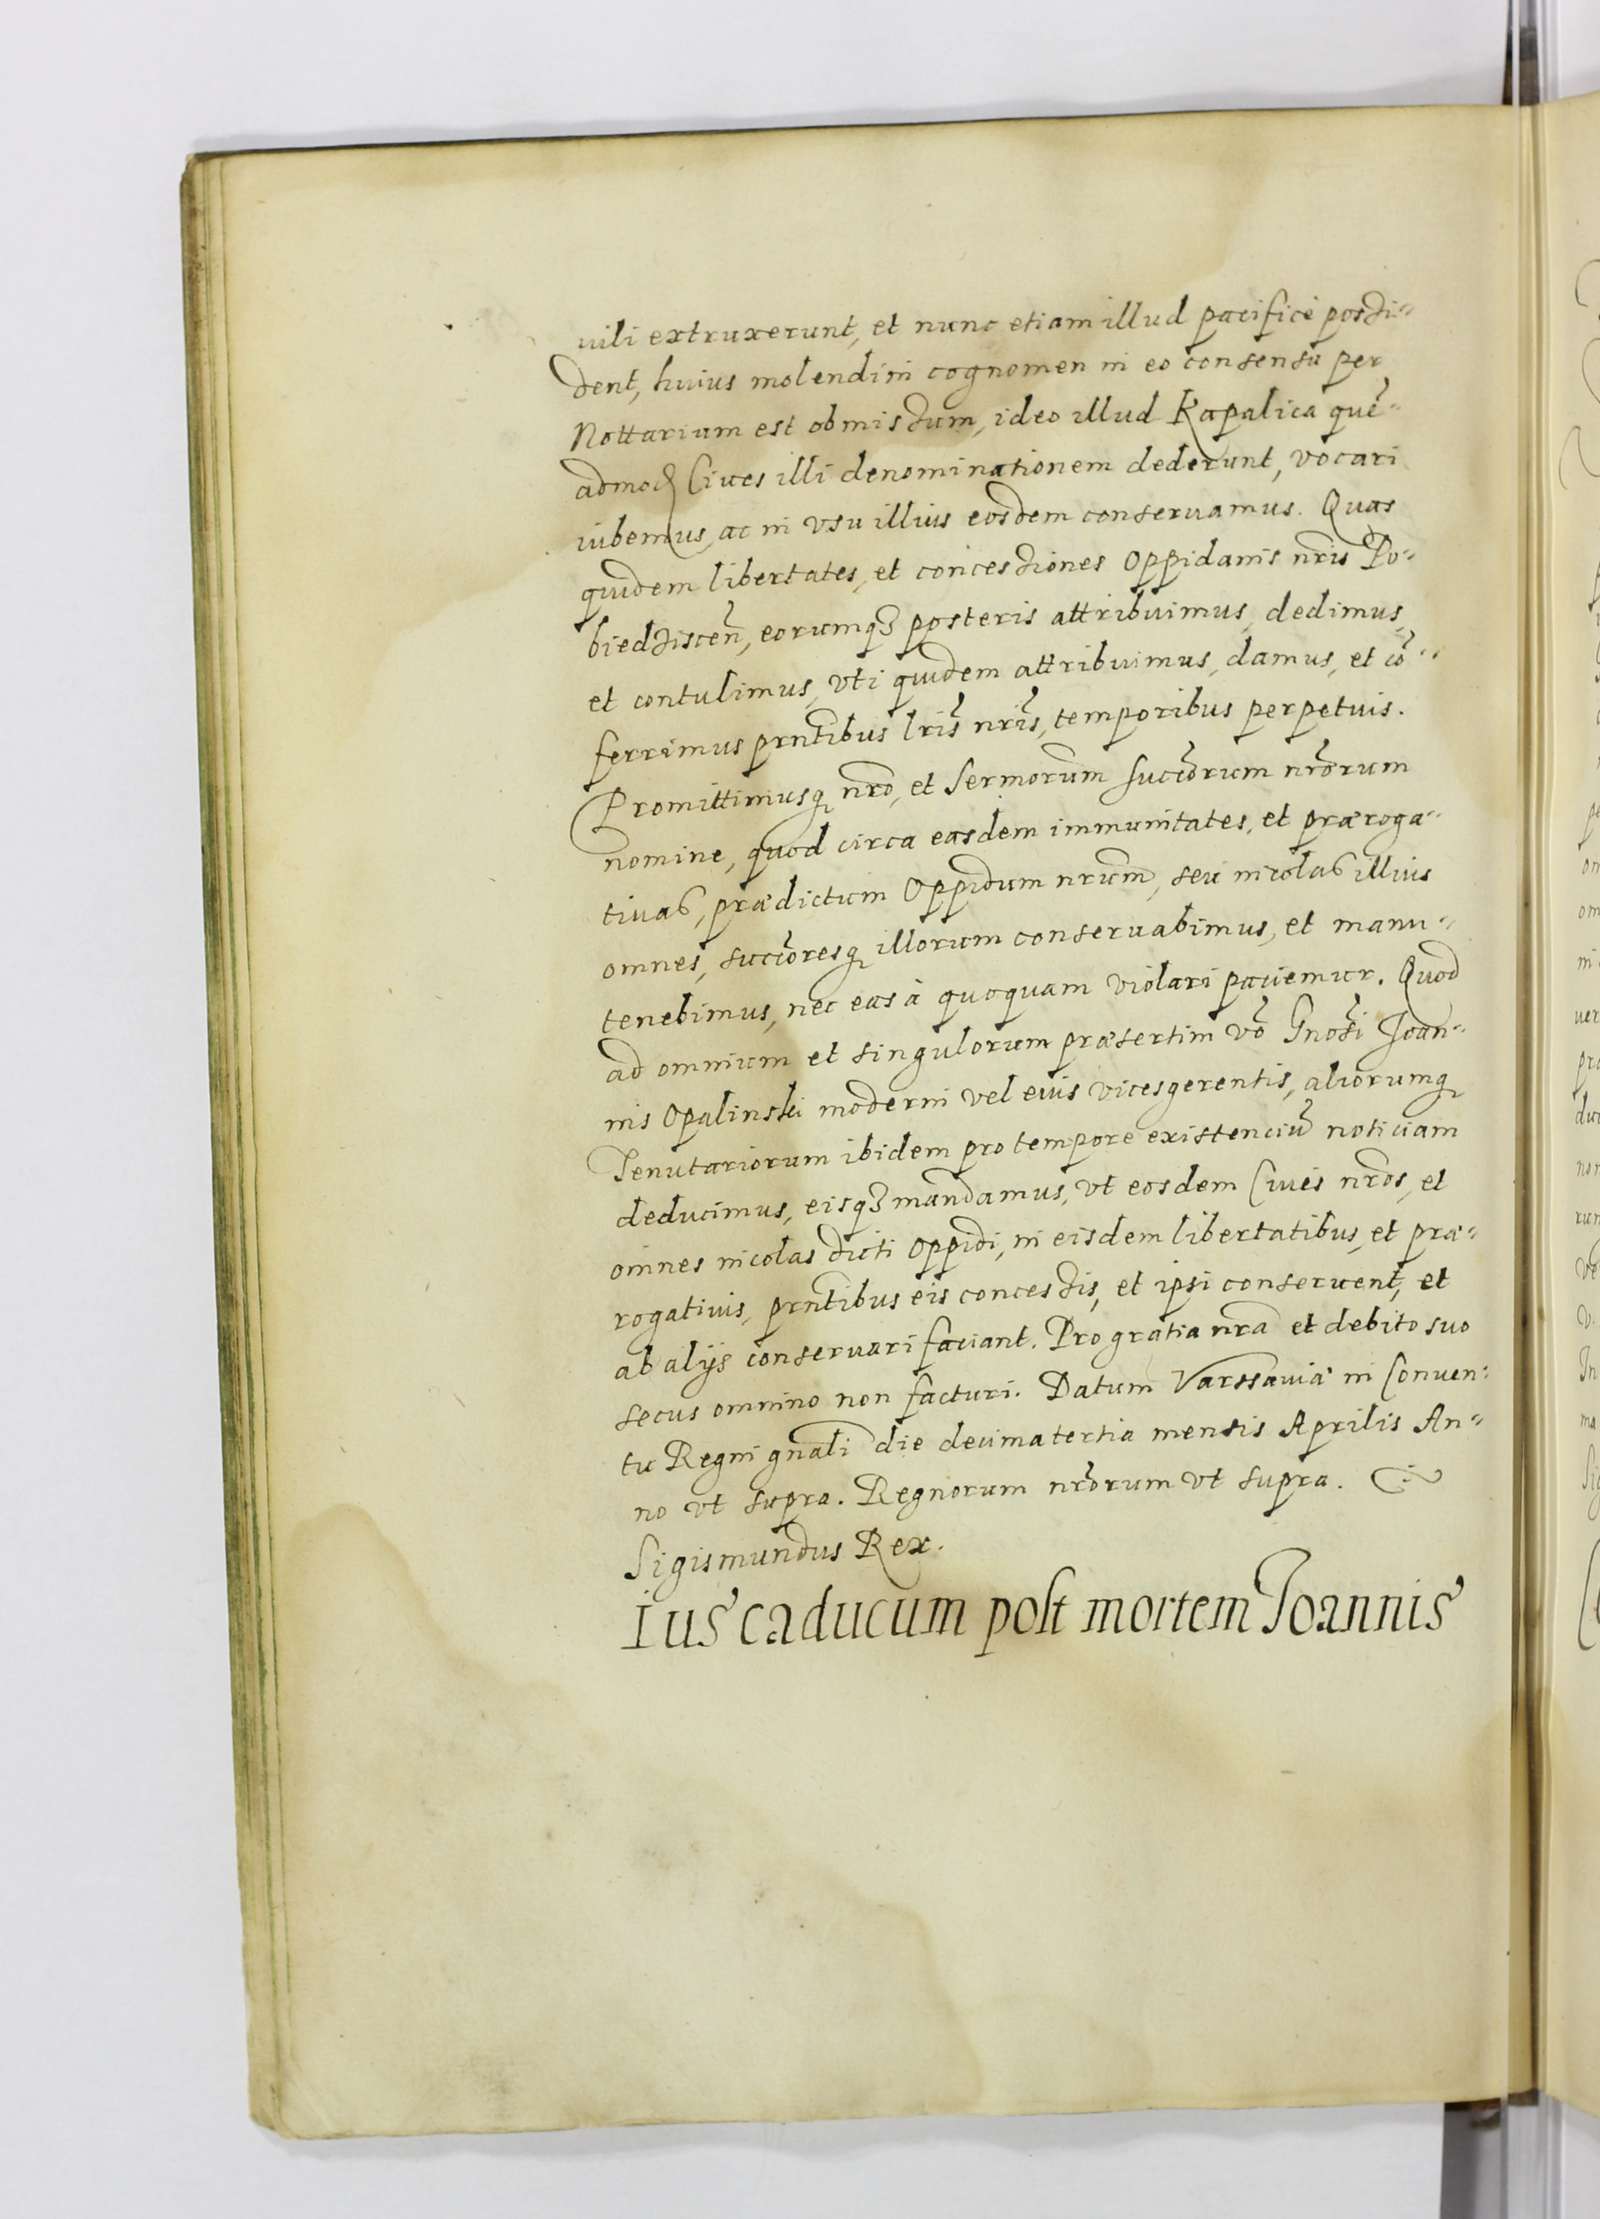 uili extruxerunt, et nunc etiam illud pacificè possi=
dent, huius molendini cognomen in eo consensu per
Nottarium est obmissum, ideo illud Kapalica quē=
admoď Ciues illi denominationem dederunt, vocari
iubemus, ac in vsu illius eosdem conseruamus. Quas
quidem libertates, et concessiones Oppidanis nr̃is Po=
biedzisceñ, eorumqꝫ posteris attribuimus, dedimus,
et contulimus, vti quidem attribuimus, damus, et cō=
ferrimus prñtibus lr̃is nr̃is, temporibus perpetuis.
Promittimusqꝫ nr̃o, et Sermorum succr̃orum nr̃orum
nomine, quod circa easdem immunitates, et præroga=
tiuas, prædictum Oppidum nr̃um, seu incolas illius
omnes, succõresqꝫ illorum conseruabimus, et manu=
tenebimus, nec eas à quoquam violari paciemur. Quod
ad omnium et singulorum præsertim võ Gnõsi Joan=
nis Opalinski moderni vel eius vicesgerentis, aliorumqꝫ
Tenutariorum ibidem pro tempore existenciũ noticiam
deducimus, eisqꝫ mandamus, vt eosdem Ciues nr̃os, et
omnes incolas dicti Oppidi, in eisdem libertatibus, et præ=
rogatiuis, prñtibus eis concessis, et ipsi conseruent, et
ab alijs conseruari faciant. Pro gratia nr̃a et debito suo
secus omnino non facturi. Datum Varssauiæ in Conuen=
tu Regni gnãli die decimatertia mensis Aprilis An=
no vt supra. Regnorum nr̃orum vt supra.
Sigismundus Rex.
Ius caducum post mortem Joannis